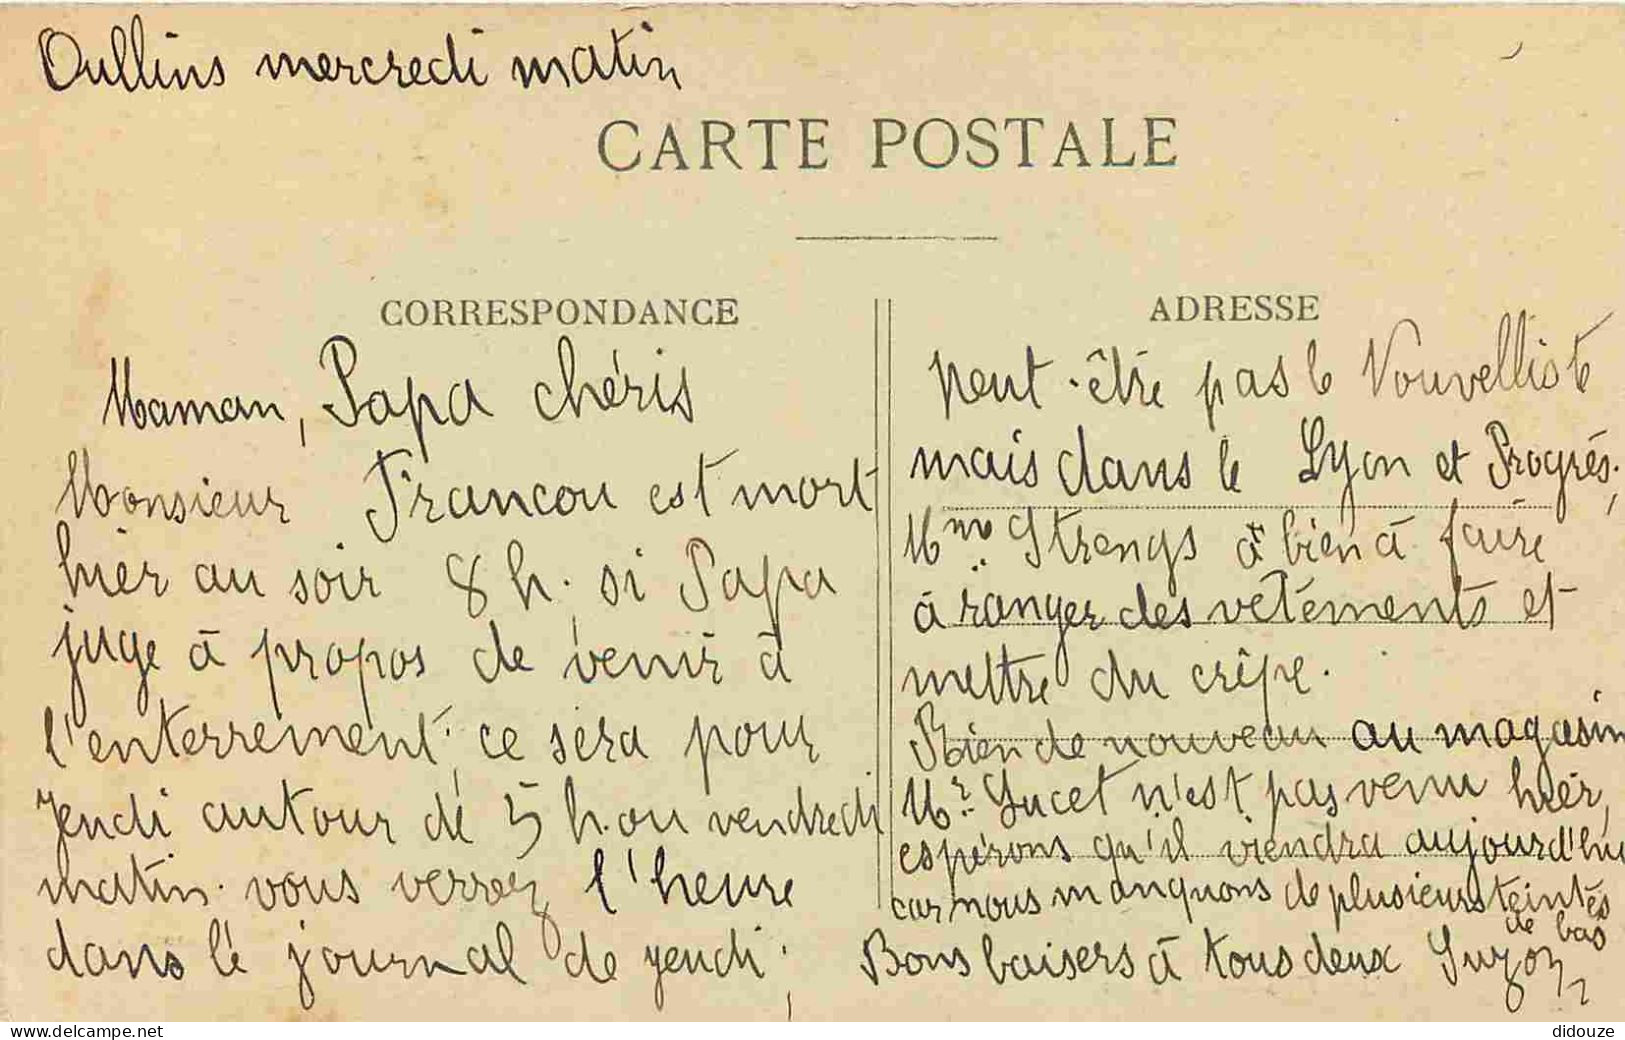 Oullins mercredi matin
CARTE POSTALE
CORRESPONDANCE
Maman, Papa chéris
Monsieur Francou est mort
hier au soir 8 h. si Papa
juge à propos de venir à
l'enterrement, ce sera pour
Jeudi autour de 5 h. ou vendredi
matin. vous verrez l'heure
dans le journal de jeudi,
ADRESSE
peut-être pas le Nouvelliste
mais dans le Lyon et Progrès,
Mme Strengs a bien à faire
à ranger des vêtements et
mettre du crêpe.
Rien de nouveau au magasin
Mr. Lucet n'est pas venu hier,
espérons qu'il viendra aujourd'hui
car nous manquons de plusieurs teintes
de bas
Bons baisers à tous deux Suzon
didouze
www.delcampe.net